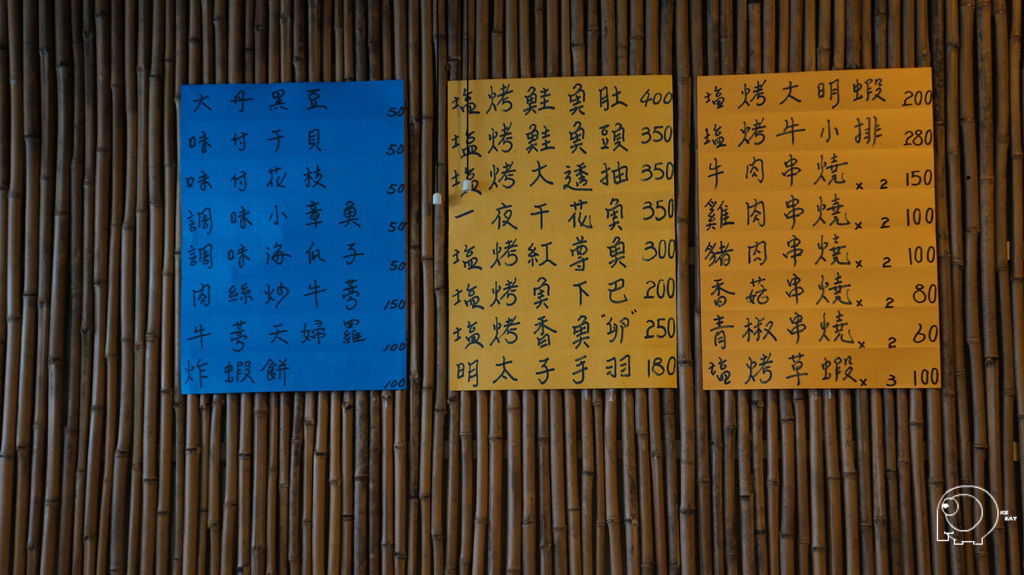 大丹黑豆 50
味付干貝 50
味付花枝 50
調味小章魚 50
調味海瓜子 50
肉絲炒牛蒡 150
牛蒡天婦羅 100
炸蝦餅 100
塩烤鮭魚肚 400
塩烤鮭魚頭 350
塩烤大透抽 350
一夜干花魚 350
塩烤紅尊魚 300
塩烤魚下巴 200
塩烤香魚"卵" 250
明太子手羽 180
塩烤大明蝦 200
塩烤牛小排 280
牛肉串燒x2 150
雞肉串燒x2 100
豬肉串燒x2 100
香菇串燒x2 80
青椒串燒x2 60
塩烤草蝦x3 100
ICE
EAT